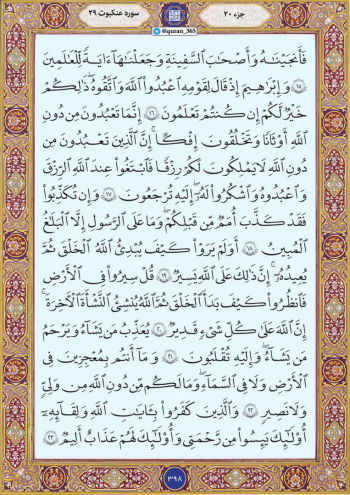 جزء ۲۰
سوره عنکبوت ۲۹
@quran_365
فَأَنجَيْنَـٰهُ وَأَصْحَـٰبَ ٱلسَّفِينَةِ وَجَعَلْنَـٰهَآ ءَايَةً لِّلْعَـٰلَمِينَ
١٥ وَإِبْرَٰهِيمَ إِذْ قَالَ لِقَوْمِهِ ٱعْبُدُوا۟ ٱللَّهَ وَٱتَّقُوهُ ۖ ذَٰلِكُمْ
خَيْرٌ لَّكُمْ إِن كُنتُمْ تَعْلَمُونَ ١٦ إِنَّمَا تَعْبُدُونَ مِن دُونِ
ٱللَّهِ أَوْثَـٰنًا وَتَخْلُقُونَ إِفْكًا ۚ إِنَّ ٱلَّذِينَ تَعْبُدُونَ مِن
دُونِ ٱللَّهِ لَا يَمْلِكُونَ لَكُمْ رِزْقًا فَٱبْتَغُوا۟ عِندَ ٱللَّهِ ٱلرِّزْقَ
وَٱعْبُدُوهُ وَٱشْكُرُوا۟ لَهُۥٓ ۖ إِلَيْهِ تُرْجَعُونَ ١٧ وَإِن تُكَذِّبُوا۟
فَقَدْ كَذَّبَ أُمَمٌ مِّن قَبْلِكُمْ ۖ وَمَا عَلَى ٱلرَّسُولِ إِلَّا ٱلْبَلَـٰغُ
ٱلْمُبِينُ ١٨ أَوَلَمْ يَرَوْا۟ كَيْفَ يُبْدِئُ ٱللَّهُ ٱلْخَلْقَ ثُمَّ
يُعِيدُهُۥٓ ۚ إِنَّ ذَٰلِكَ عَلَى ٱللَّهِ يَسِيرٌ ١٩ قُلْ سِيرُوا۟ فِى ٱلْأَرْضِ
فَٱنظُرُوا۟ كَيْفَ بَدَأَ ٱلْخَلْقَ ۚ ثُمَّ ٱللَّهُ يُنشِئُ ٱلنَّشْأَةَ ٱلْـَٔاخِرَةَ ۚ
إِنَّ ٱللَّهَ عَلَىٰ كُلِّ شَىْءٍ قَدِيرٌ ٢٠ يُعَذِّبُ مَن يَشَآءُ وَيَرْحَمُ
مَن يَشَآءُ ۖ وَإِلَيْهِ تُقْلَبُونَ ٢١ وَمَآ أَنتُم بِمُعْجِزِينَ فِى
ٱلْأَرْضِ وَلَا فِى ٱلسَّمَآءِ ۖ وَمَا لَكُم مِّن دُونِ ٱللَّهِ مِن وَلِىٍّ
وَلَا نَصِيرٍ ٢٢ وَٱلَّذِينَ كَفَرُوا۟ بِـَٔايَـٰتِ ٱللَّهِ وَلِقَآئِهِۦٓ
أُو۟لَـٰٓئِكَ يَئِسُوا۟ مِن رَّحْمَتِى وَأُو۟لَـٰٓئِكَ لَهُمْ عَذَابٌ أَلِيمٌ ٢٣
۳۹۸